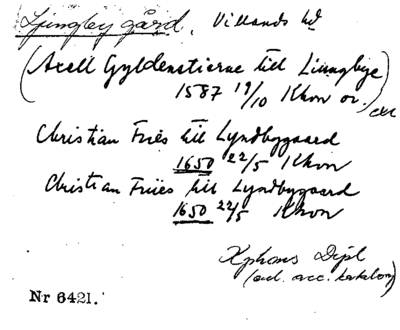 Ljungby gård, Villands hd
(Axell Gyldenstierne till Liungbye)
1587 19/10 Khvn or.
Christian Friis till Lyndbygaard
1650 22/5 Khvn
Christian Friis till Lyndbygaard
1650 22/5 Khvn
Xphers Dipl
Nr 6421.